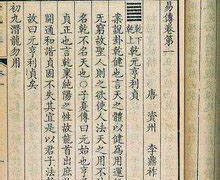 易傳卷第一
唐 資州 李鼎祚
乾下乾上 乾元亨利貞
案說卦乾健也言天之體以健為用運
无窮故聖人則之欲使人法天之用不
名乾不名天也○子夏傳曰元始也亨
貞正也言乾稟純陽之性故能首出庶
開通和諧貞固不失其宜是以君子法
故曰元亨利貞矣
初九潛龍勿用